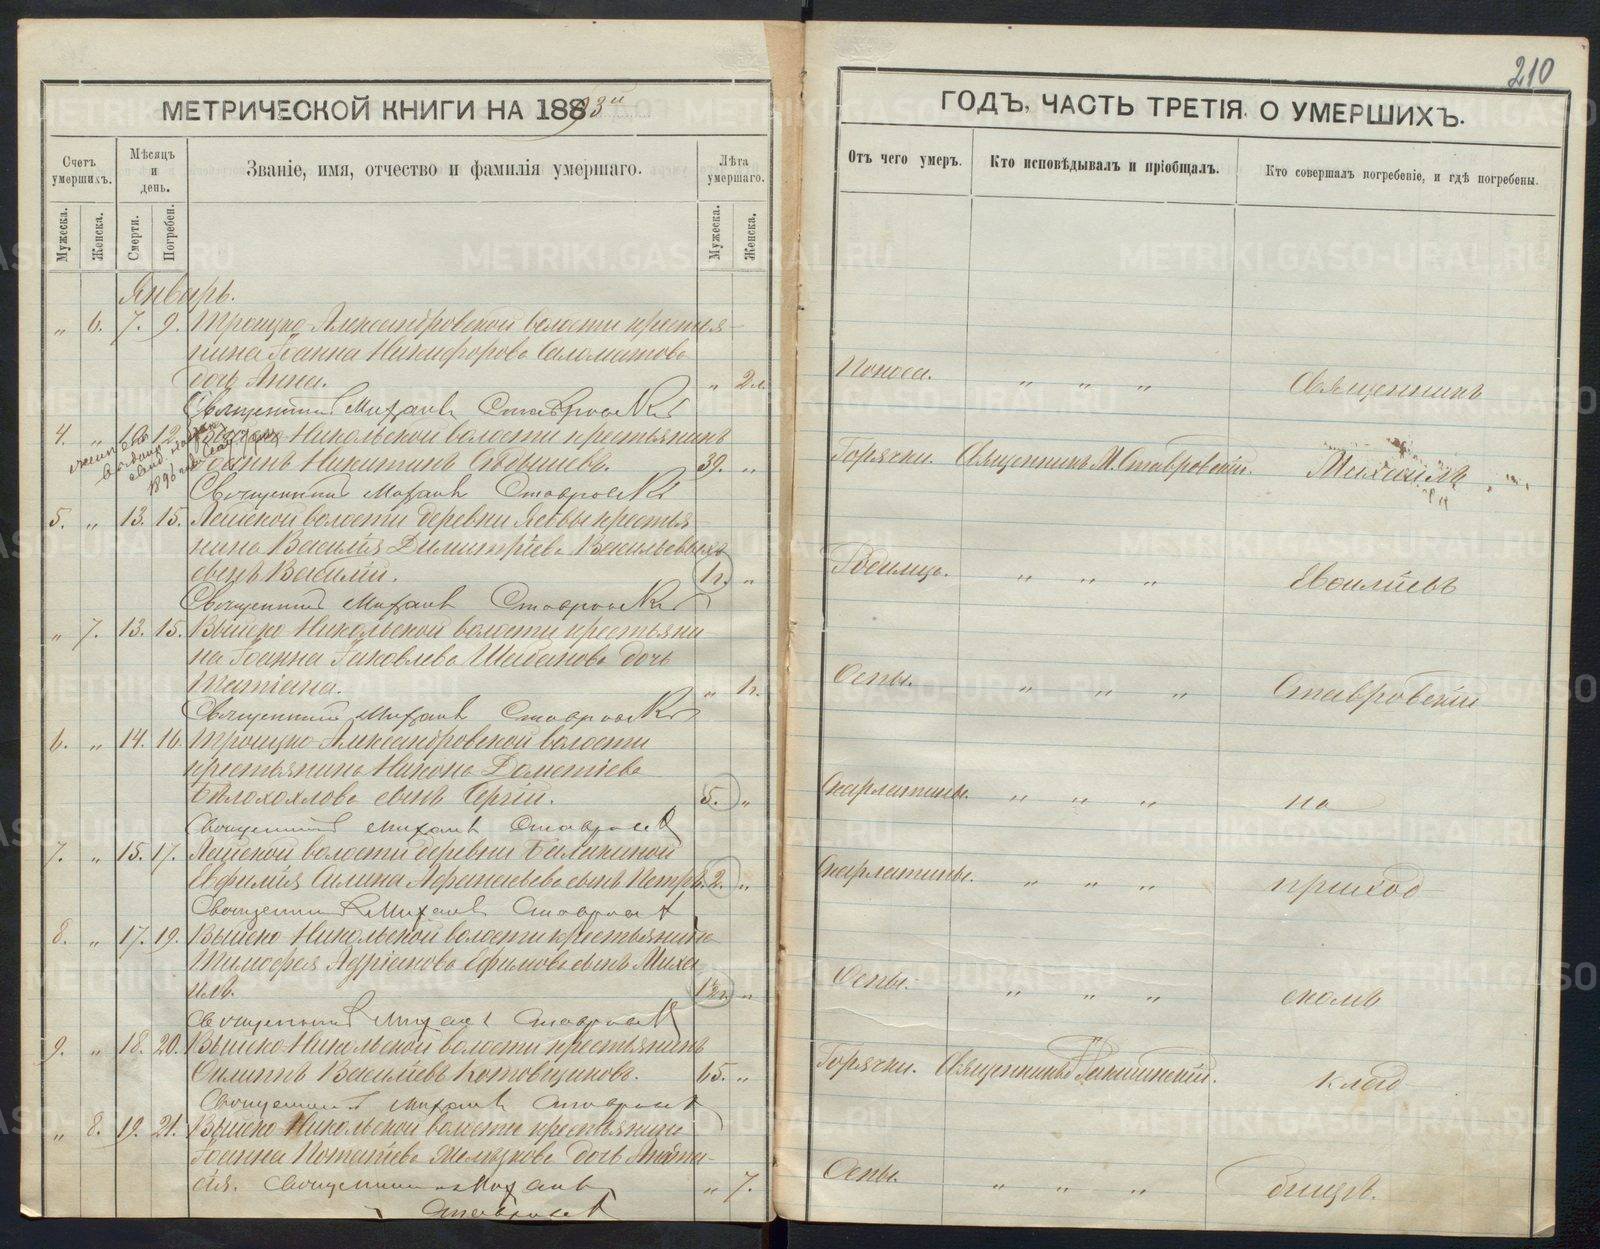 МЕТРИЧЕСКОЙ КНИГИ НА 1893й
Счетъ умершихъ.
Мѣсяцъ и день.
Званіе, имя, отчество и фамилія умершаго.
Лѣта умершаго.
Мужеска.
Женска.
Смерти.
Погребен.
Мужеска.
Женска.
Январь.
„ 6. 7. 9. Троицко-Александровской волости крестья-
нина Іоанна Никифорова Саломатова
дочь Анна. „ 2 л.
Священникъ Михаилъ Ставровскій
4. „ 10. 12. Выйско-Никольской волости крестьянинъ
Іоаннъ Никитинъ 39. „
Священникъ Михаилъ Ставровскій
5. „ 13. 15. Лайской волости деревни крестья-
нина Василія Димитріева Васильевыхъ
сынъ Василій. 1 г. „
Священникъ Михаилъ Ставровскій
„ 7. 13. 15. Выйско-Никольской волости крестьяни
на Іоанна Іаковлева Шабанова дочь
Татіана. „ 1 г.
Священникъ Михаилъ Ставровскій
6. „ 14. 16. Троицко-Александровской волости
крестьянина Никона Дометіева
Бѣлохохлова сынъ Сергій. 5. „
Священникъ Михаилъ Ставровскій
7. „ 15. 17. Лайской волости деревни Балакиной
Евфимія Силина Афанасьева сынъ Петръ. 2. „
Священникъ Михаилъ Ставровскій
8. „ 17. 19. Выйско-Никольской волости крестьянина
Тимофея Адріанова Ефимова сынъ Миха
илъ. „
Священникъ Михаилъ Ставровскій
9. „ 18. 20. Выйско-Никольской волости крестьянинъ
Филиппъ Василіевъ Котовщиковъ. 65. „
Священникъ Михаилъ Ставровскій
„ 8. 19. 21. Выйско-Никольской волости крестьянина
Іоанна Потапіева Мельзкова дочь
Священникъ Михаилъ „ 7.
Ставровскій
210
ГОДЪ, ЧАСТЬ ТРЕТІЯ О УМЕРШИХЪ.
Отъ чего умеръ.
Кто исповѣдывалъ и пріобщалъ.
Кто совершалъ погребеніе, и гдѣ погребены.
Поноса. „ „ „ Священникъ
Горячки. Священникъ М. Ставровскій. Михаилъ
Родимца. „ „ „ Евоиліевъ
Оспы. „ „ „ Ставровскій
Скарлатины. „ „ „ на
Скарлатины. „ „ „ приход
Оспы. „ „ „ скомъ
Горячки. Священникъ клад
Оспы. „ „ „ бищѣ.
METRIKI.GASO-URAL.RU